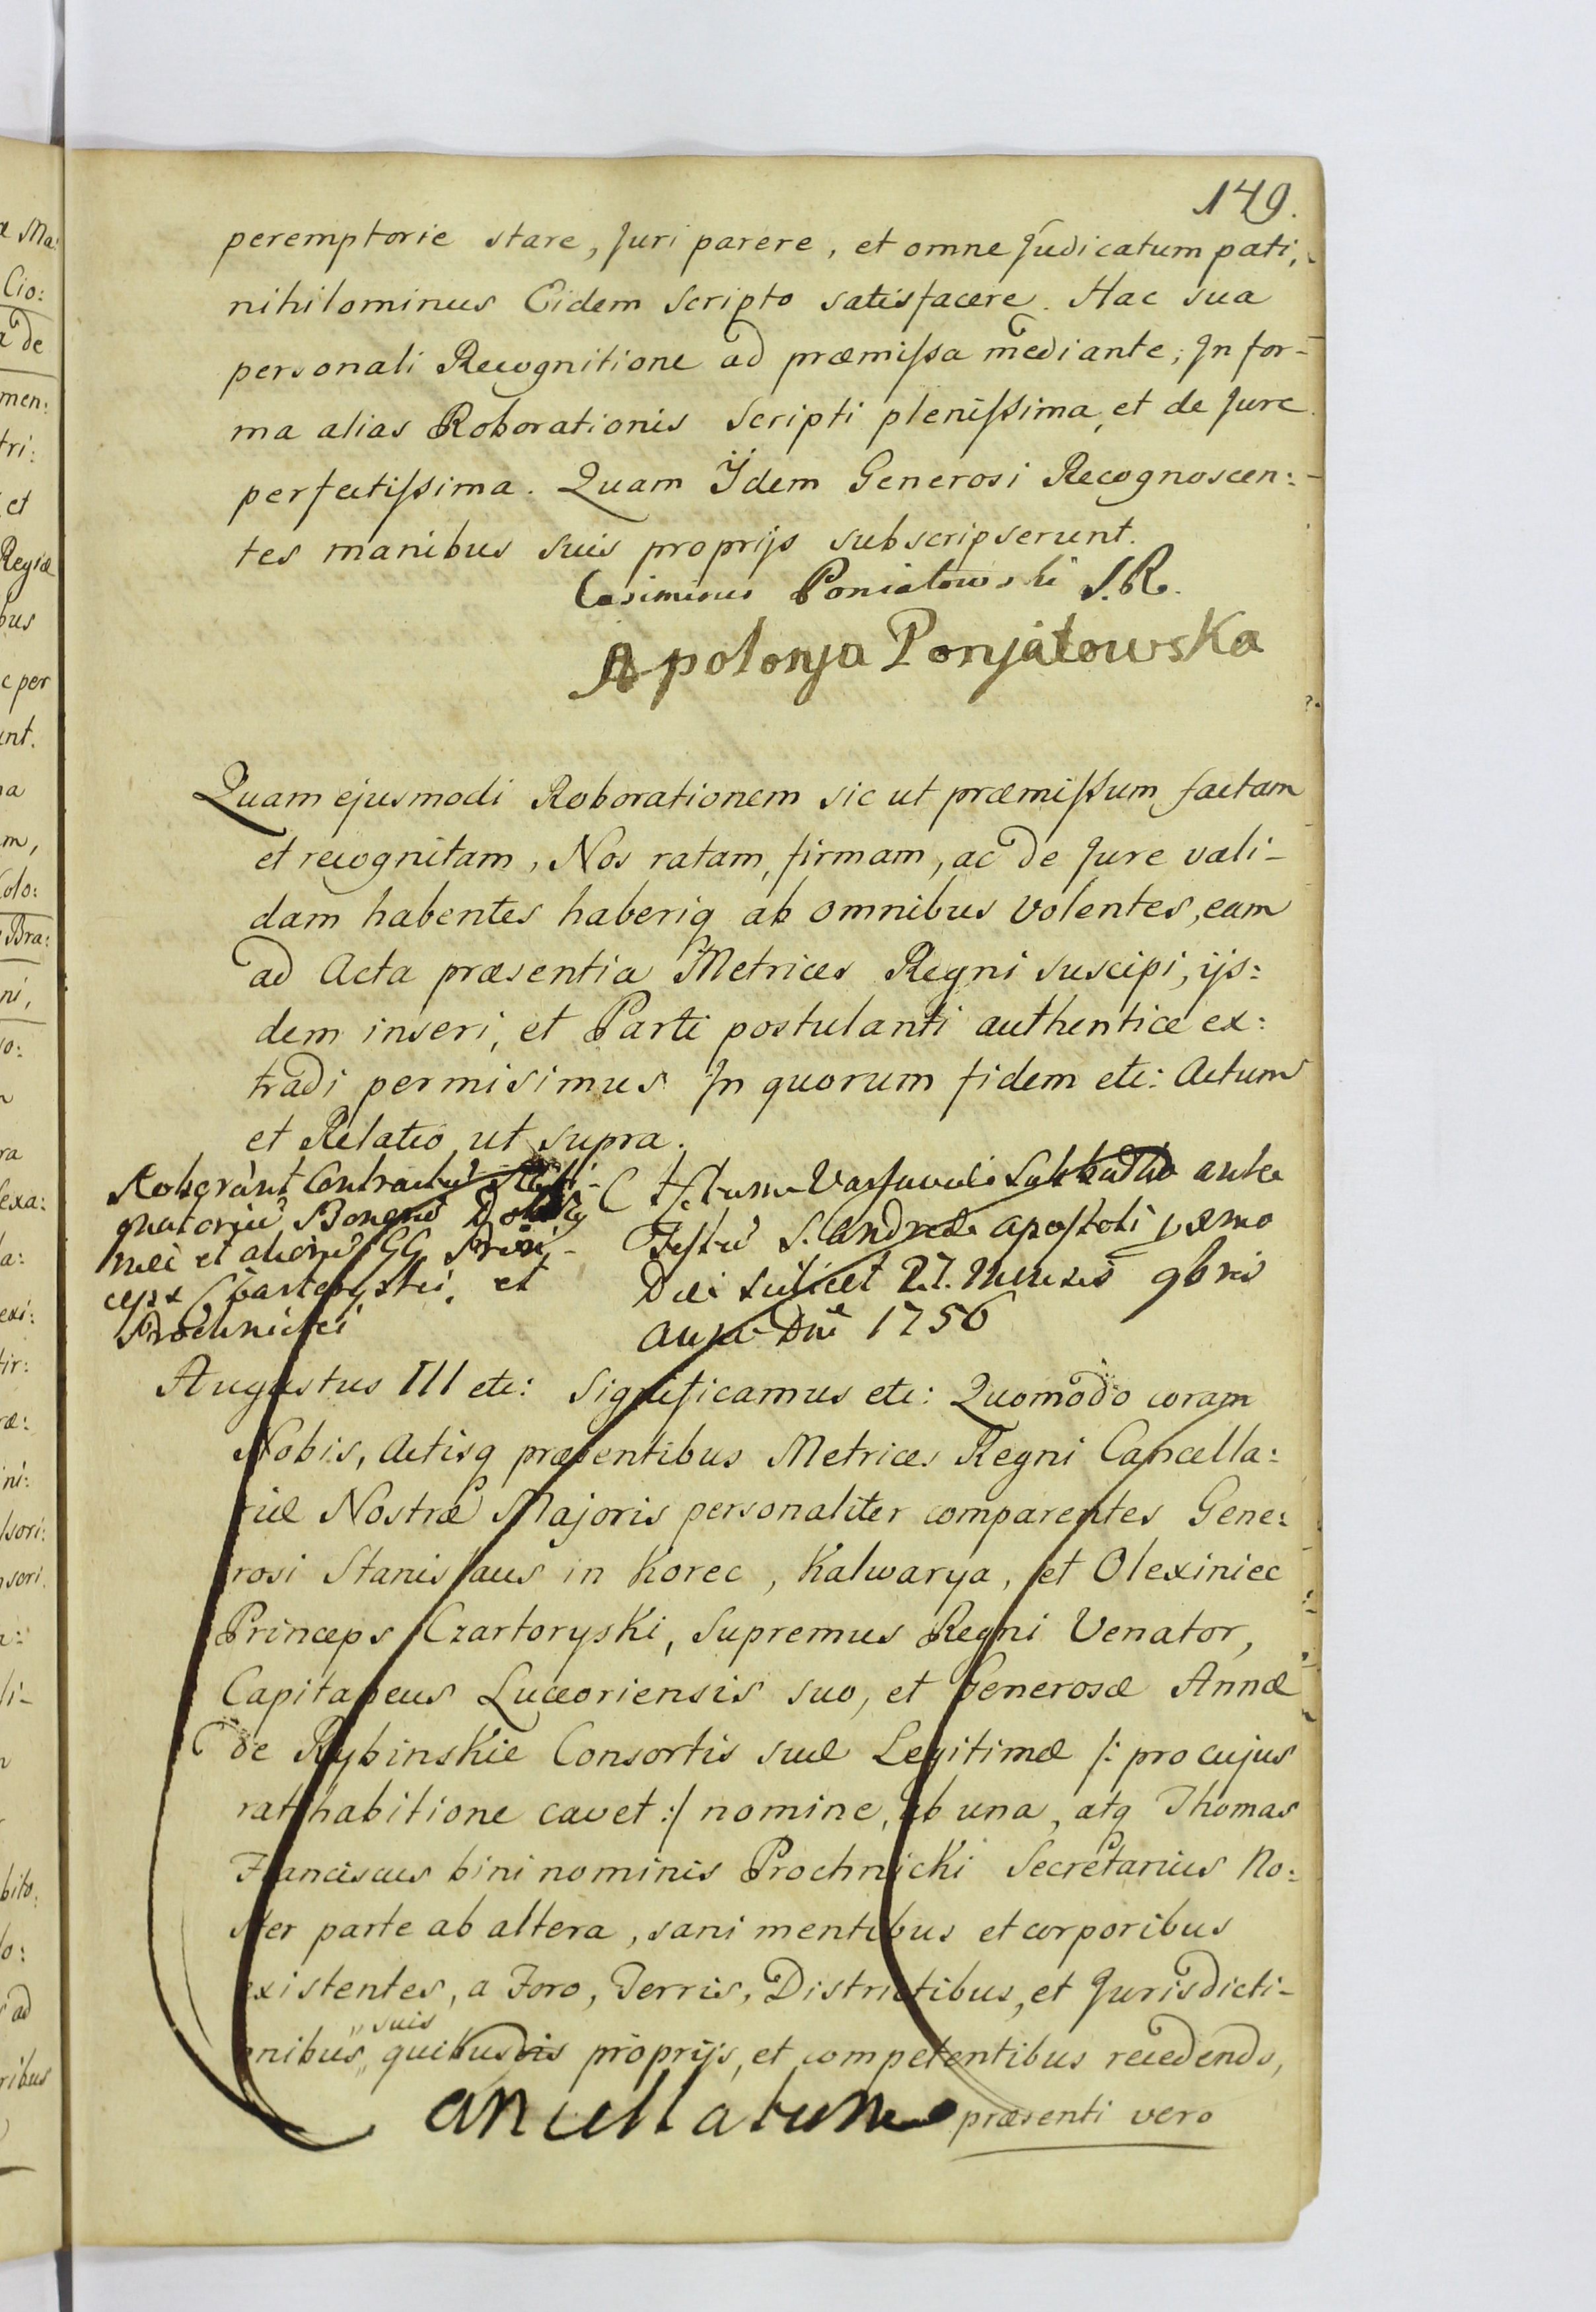 149.
peremptorie stare, Juri parere, et omne Judicatum pati,
nihilominus Eidem Scripto satisfacere. Hac sua
personali Recognitione ad præmissa mediante; In for-
ma alias Roborationis Scripti plenissima, et de Jure
perfectissima. Quam Ijdem Generosi Recognoscen:
tes manibus suis proprijs subscripserunt.
Casimirus Poniatowski S.R.
Apolonja Ponjatowska
Quam ejusmodi Roborationem sic ut præmissum factam
et recognitam, Nos ratam, firmam, ac de Jure vali-
dam habentes haberiq ab omnibus volentes, eam
ad Acta præsentia Metrices Regni suscipi, ijs:
dem inseri, et Parti postulanti authentice ex:
tradi permisimus. In quorum fidem etc: Actum
et Relatio ut supra.
Roborant Contractus
et aliorū GG Prin-
ceps Czartoryski, et
Prochnicki
Actum Varsaviæ Sabbatho ante
Festū S. Andreæ Apostoli
Die scilicet 27. Mensis 9bris
Anno Dnī 1756
Augustus III etc: Significamus etc: Quomodo coram
Nobis, Actisq præsentibus Metrices Regni Cancella:
riæ Nostræ Majoris personaliter comparentes Gene:
rosi Stanislaus in Korec, Kalwarya, et Olexiniec
Princeps Czartoryski, Supremus Regni Venator,
Capitaneus Luceoriensis suo, et Generosæ Annæ
de Rybinskie Consortis suæ Legitimæ /: pro cujus
ratihabitione cavet :/ nomine, ab una, atq Thomas
Franciscus bini nominis Prochnicki Secretarius No:
ster parte ab altera, sani mentibus et corporibus
existentes, a Foro, Terris, Districtibus, et Jurisdicti-
suis
onibus quibusvis proprijs, et competentibus recedendo,
Cancellatum præsenti vero